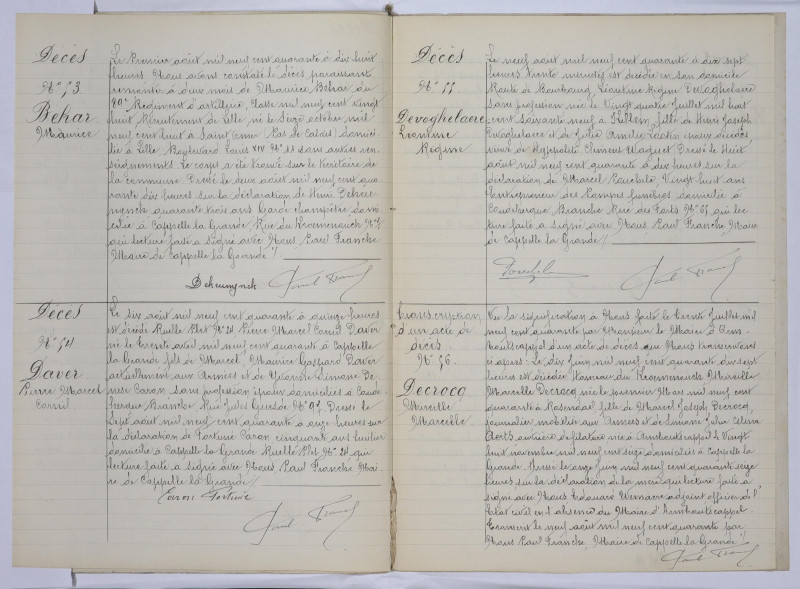 Décès
N° 53
Behar
Maurice
Le Premier août mil neuf cent quarante à dix huit
heures Nous avons constaté le décès paraissant
remonter à deux mois de Maurice Behar du
Régiment d'artillerie, Classe mil neuf cent vingt
huit Recrutement de Lille né le Seize octobre mil
neuf cent huit à Saint Omer Pas de Calais domici
lié à Lille Boulevard Louis XIV N° sans autres ren
seignements. Le corps a été trouvé sur le territoire de
la commune Dressé le deux août mil neuf cent qua
rante dix heures sur la déclaration de Henri
quarante trois ans Garde champêtre domi
cilié à Cappelle la Grande Rue du Kroemenouck N°
qui lecture faite a signé avec Nous Paul Francke
Maire de Cappelle la Grande
Décès
N° 54
Daver
Pierre Marcel
Cornil
Le six août mil neuf cent quarante à quinze heures
est décédé Ruelle Blet N° 24 Pierre Marcel Cornil Daver
né le trente avril mil neuf cent quarante à Cappelle
la Grande fils de Marcel Maurice Gaspard Daver
actuellement aux Armées et de Yvonne Simone De
nise Caron sans profession époux domiciliés à Coude
kerque Branche Rue Jules Guesde N° Dressé le
Sept août mil neuf cent quarante à onze heures sur
la déclaration de Fortuné Caron cinquante ans
domicilié à Cappelle la Grande Ruelle Blet N° 24 qui
lecture faite a signé avec Nous, Paul Francke Mai
re de Cappelle la Grande
Caron Fortuné
Décès
N° 55
Devoghelaere
Léontine
Régine
Le neuf août mil neuf cent quarante à dix sept
heures trente minutes est décédée en son domicile
Route de Bourbourg Léontine Régine Devoghelaere
sans profession née le Vingt quatre Juillet mil huit
cent soixante neuf à fille de Henri Joseph
Devoghelaere et de Julie Amélie époux décédés
veuve de Hyppolite Clément Maquet Dressé le
août mil neuf cent quarante à dix heures sur la
déclaration de Marcel Vingt huit ans
Entrepreneur des Pompes funèbres domicilié à
Coudekerque Branche Rue des Forts N° qui lec
ture faite a signé avec Nous Paul Francke, Maire
de Cappelle la Grande
Transcription
d'un acte de
décès
N° 56
Decrocq
Mireille
Marcelle
Vu la signification à Nous faite le trente Juillet mil
neuf cent quarante par Monsieur le Maire d'Arm
bouts cappel d'un acte de décès que Nous transcrivons
ci après: Le dix Juin mil neuf cent quarante dix sept
heures est décédée Hameau du Kroemenouck Mireille
Marcelle Decrocq née le premier Mars mil neuf cent
quarante à Rosendael fille de Marcel Joseph Decrocq,
journalier mobilisé aux Armées et de Simone Julia
Aerts ouvrière de filature née à Armboutscappel le Vingt
huit novembre mil neuf cent seize domiciliés à Cappelle la
Grande Dressé le onze Juin mil neuf cent quarante seize
heures sur la déclaration de la mère qui lecture faite a
signé avec Nous Edouard adjoint officier de l'
Etat civil en l'absence du Maire d'Armboutscappel.
Transcrit le neuf août mil neuf cent quarante par
Nous Paul Francke, Maire de Cappelle la Grande